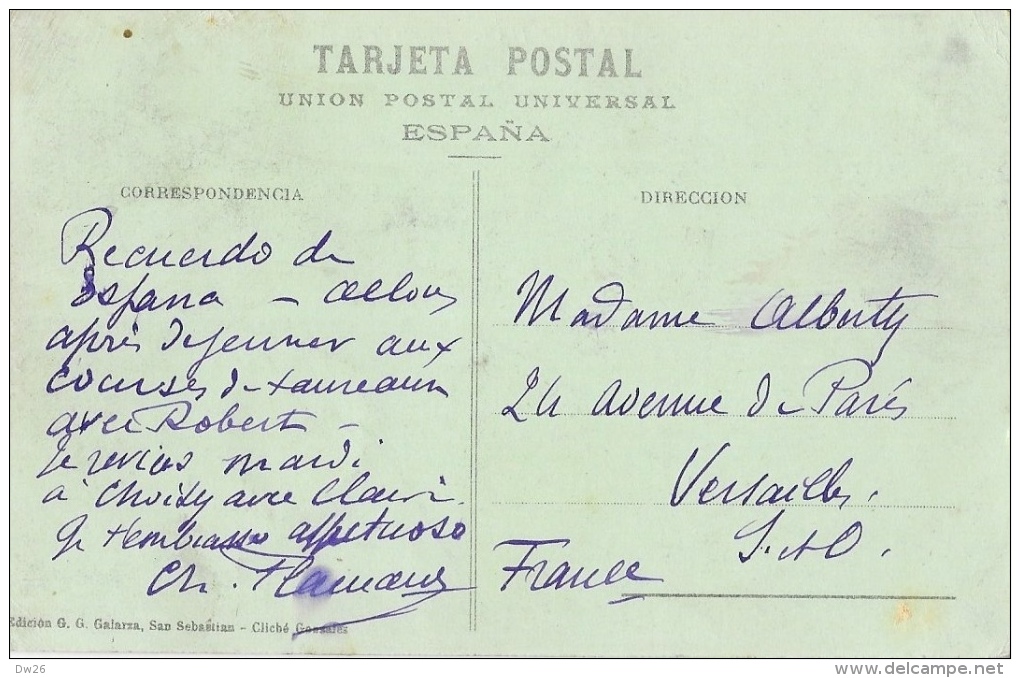 TARJETA POSTAL
UNION POSTAL UNIVERSAL
ESPAÑA
CORRESPONDENCIA
Recuerdo de
España - allons
après déjeuner aux
courses de taureaux
avec Robert -
Je reviens mardi
à Choisy avec
Je t'embrasse affectuoso
Ch.
Edición G. G. Galarza, San Sebastian - Cliché Gonzales
DIRECCION
Madame Alberty
24 avenue de Paris
Versailles.
S. et O.
France
Dw26
delcampe.net